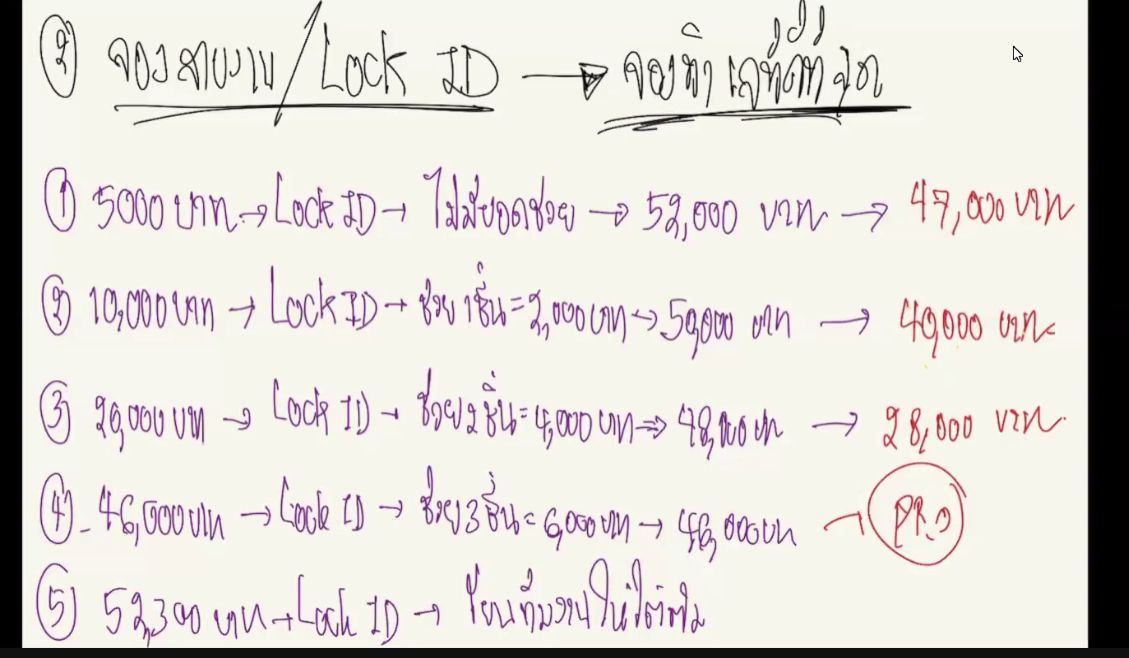 ② จองสายงาน/Lock ID → จองทำเลที่ดีที่สุด
① 5000 บาท → Lock ID → ไม่มียอดช่วย → 52,000 บาท → 47,000 บาท
② 10,000 บาท → Lock ID → ช่วย 1 ชิ้น = 2,000 บาท → 50,000 บาท → 40,000 บาท
③ 20,000 บาท → Lock ID → ช่วย 2 ชิ้น = 4,000 บาท → 48,000 บาท → 28,000 บาท
④ 46,000 บาท → Lock ID → ช่วย 3 ชิ้น = 6,000 บาท → 46,000 บาท → PRO
⑤ 52,300 บาท → Lock ID →